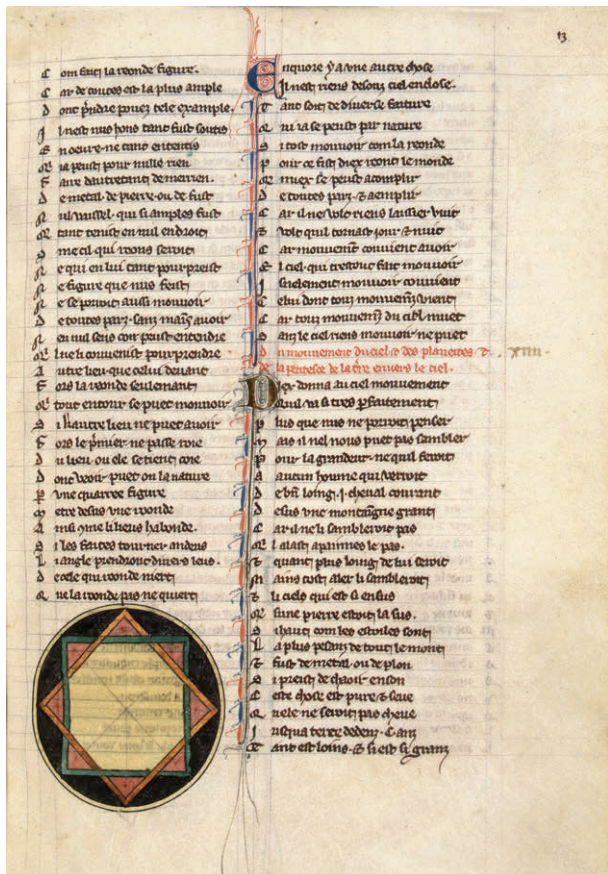 13
C om fait la reonde figure.
C ar de toutes est la plus ample
D ont prendre pouez tele example.
I l nest nus hons tant fust soutis
E n oeure ne tant ententis
Q ia peust pour nulle rien
F aire dautretant de merrien.
D e metal de pierre ou de fust
N ul uaissel qui si amples fust
Q tant tenist en nul endroit
C me cil qui reons seroit
N e qui en lui tant pourpreist
N e figure que nus feist
N e se porroit aussi mouuoir
D e toutes parz sanz
N en nul sens con peust entendre
Q lue li conuenist pourprendre
A utre lieu que celui deuant
F ors la reonde seulemant
Q tout entour se puet mouuoir
S i hautre lieu ne puet auoir
F ors le premier ne passe roie
D u lieu ou ele se tient coie
D ont veoir puet on la nature
P vne quarree figure
M etre desus vne reonde
A insi li lieus habonde.
S i les faites tourner andeus
L i angle prendront diuers leus.
D e cele qui reonde niert
Q ue la reonde pas ne quiert
E nquore y a vne autre chose
Il nest riens desouz ciel enclose.
T ant soit de diuerse faiture
Q ui ia se peust par nature
S i tost mouuoir com la reonde
P our ce fist diex reont le monde
Q miex se peust acomplir
D e toutes parz & aemplir
C ar il ne volt riens laissier vuit
& volt quil tornast jour & nuit
C ar mouuement couuient auoir
E l ciel qui trestout fait mouuoir
I snelement mouuoir couuient
C elui dont touz mouuemenz vient
C ar touz mouuemenz du ciel muet
S anz le ciel riens mouuoir ne puet
D u mouuement du ciel & des planetes &
de la petitesce de la terre enuers le ciel. XIIII
D iex donna au ciel mouuement
Q uil va si tres parfaitement
P lus que nus ne porroit penser
M ais il nel nous puet pas sambler
P our la grandeur ne quil feroit
A aucun houme qui verroit
D e bien loing .j. cheual courant
D esus vne montaigne grant
C ar il ne li sambleroit pas
Q l alast apainnes le pas.
& quant plus loing de lui seroit
M ains tost aler li sambleroit
& li ciels qui est si ensus
Q sune pierre estoit la sus.
S i haut com les estoiles sont
L a plus pesant de tout le mont
& fust de metal ou de plon
S i preist de chaoir enson
C este chose est pure & seue
Q uele ne seroit pas cheue
I usqua terre dedenz .C. anz
T ant est loins & si est si granz